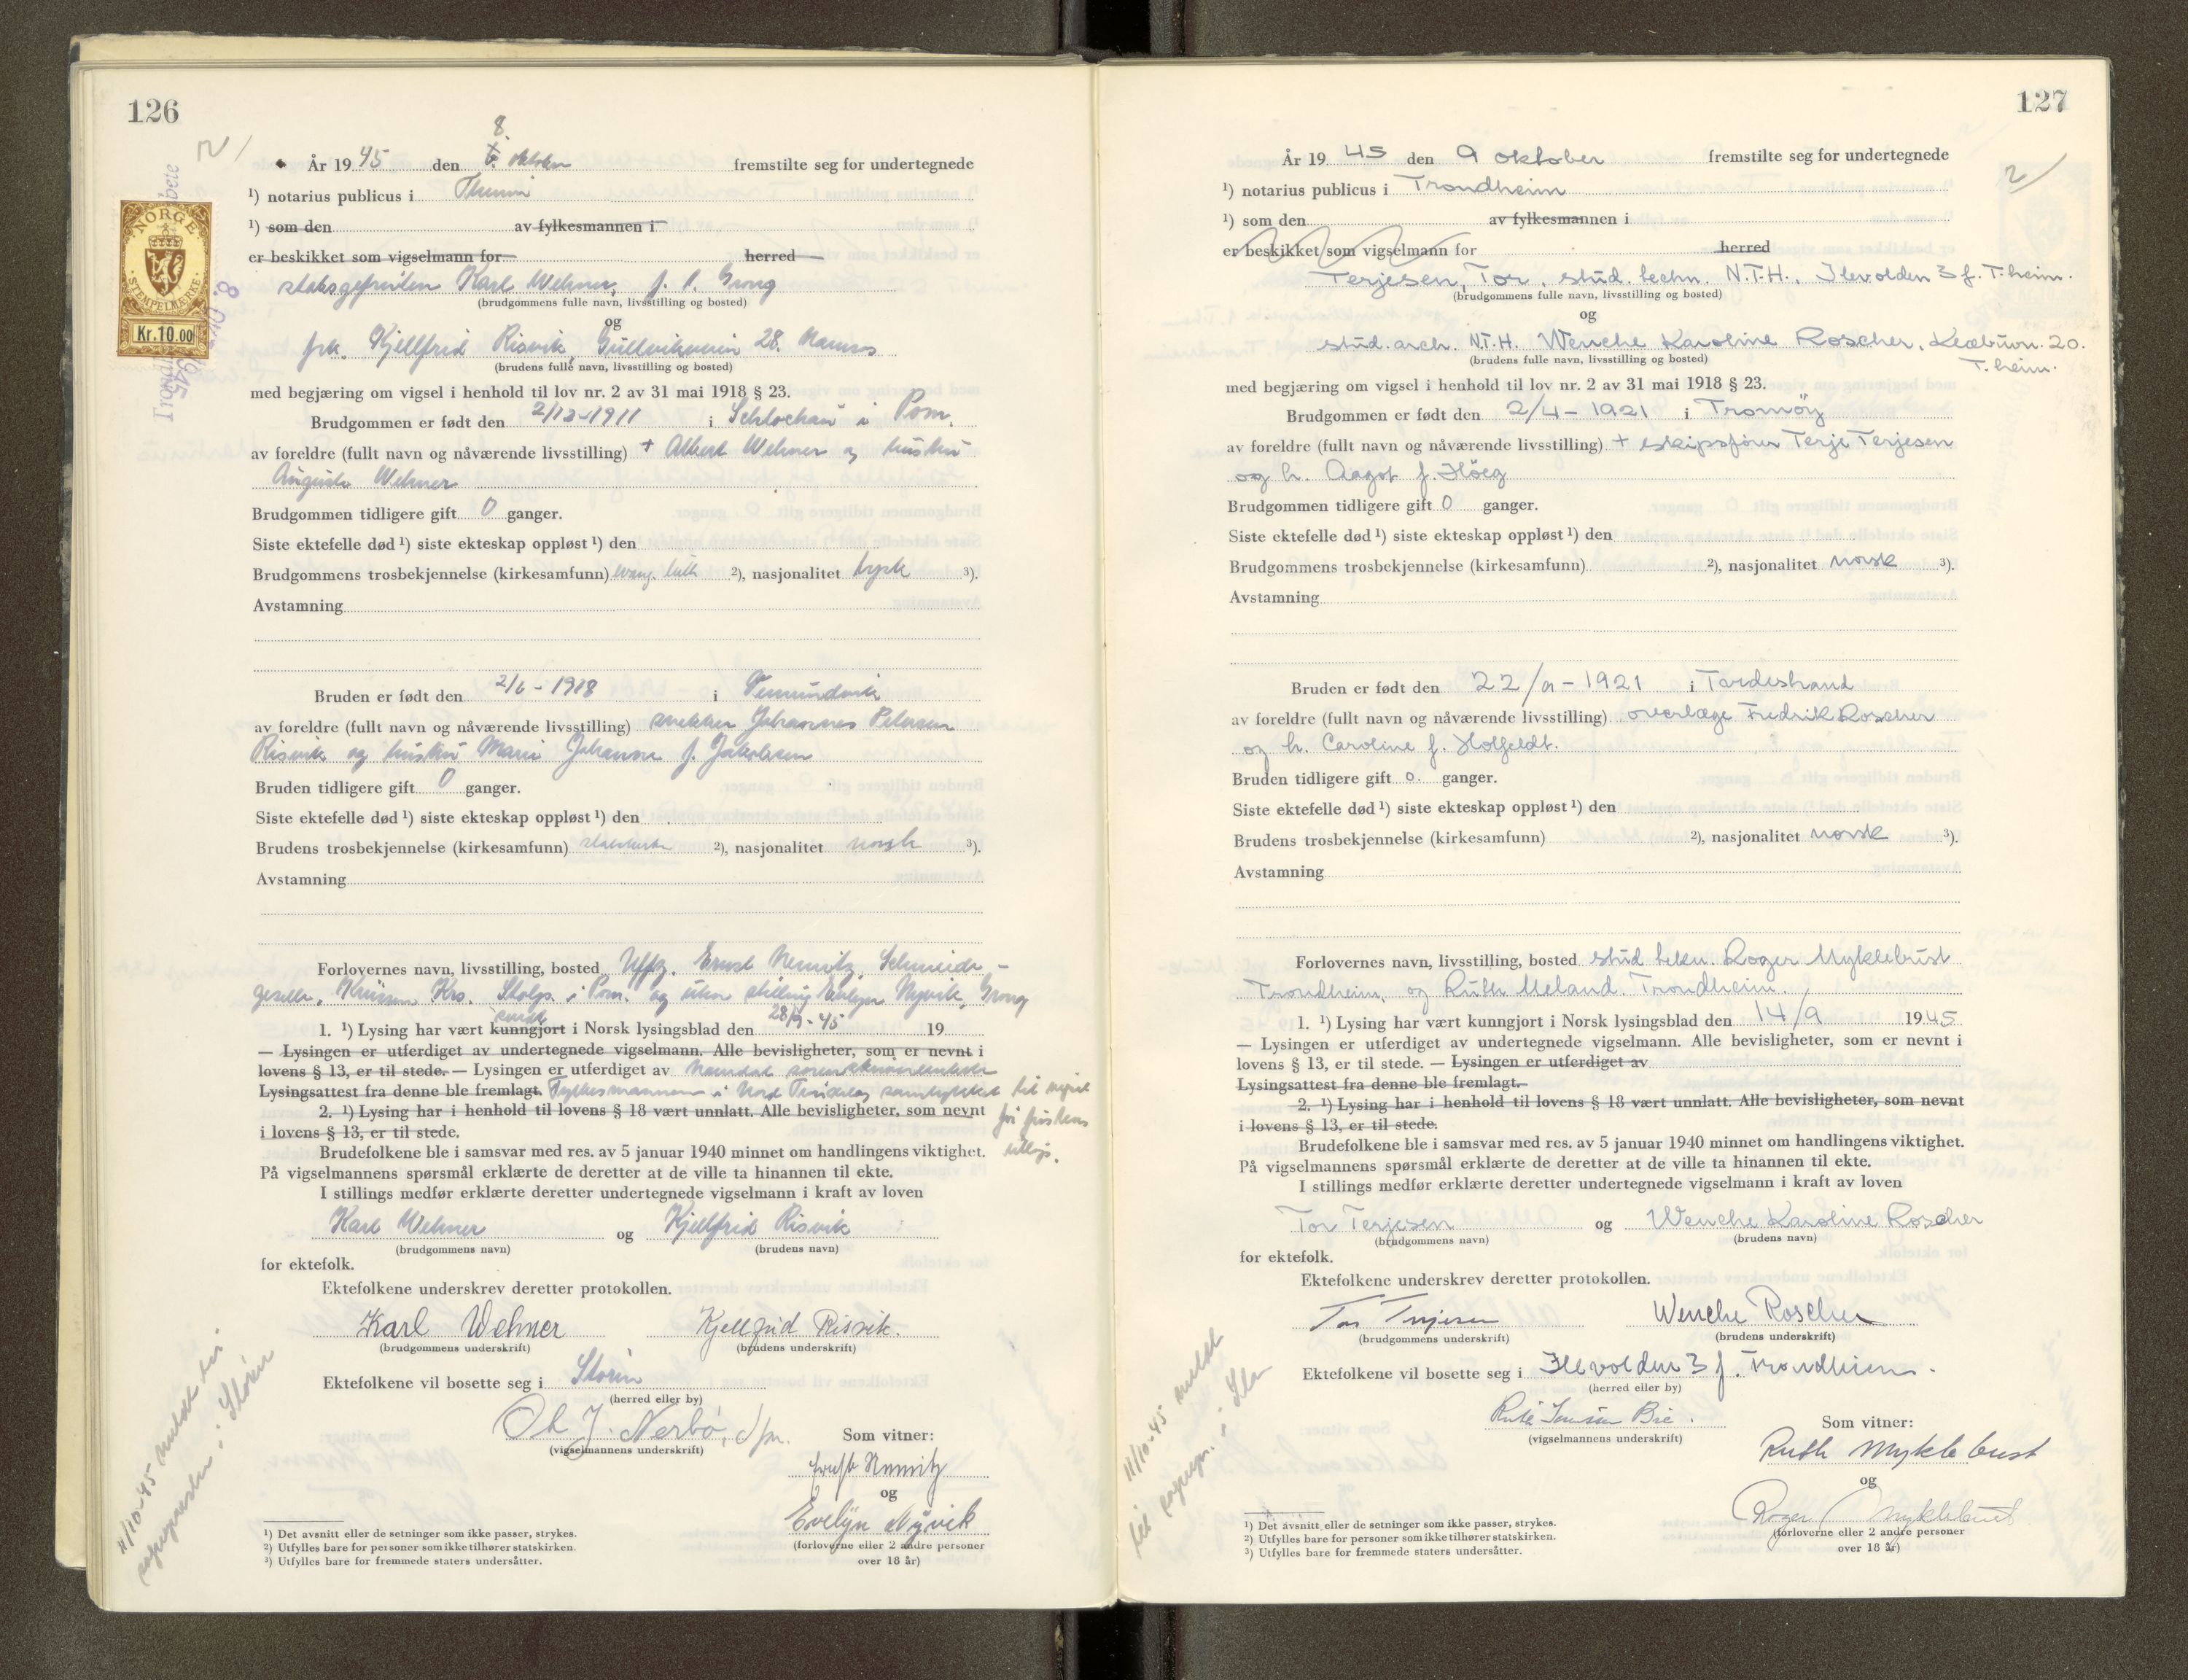 126
8.
År 1945 den oktober fremstilte seg for undertegnede
¹) notarius publicus i
¹) som den av fylkesmannen i
er beskikket som vigselmann for herred
Karl Wehner, Grong
(brudgommens fulle navn, livsstilling og bosted)
og
frk. Kjellfrid Risvik, 28. Namsos
(brudens fulle navn, livsstilling og bosted)
NORGE
STEMPELMERKE
Kr.10.00
med begjæring om vigsel i henhold til lov nr. 2 av 31 mai 1918 § 23.
Brudgommen er født den 2/12-1911 i Schlochau i Pom.
av foreldre (fullt navn og nåværende livsstilling) + Albert Wehner og hustru
Auguste Wehner
Brudgommen tidligere gift 0 ganger.
Siste ektefelle død ¹) siste ekteskap oppløst ¹) den
Brudgommens trosbekjennelse (kirkesamfunn) evang. luth ²), nasjonalitet tysk ³).
Avstamning
Bruden er født den 2/6-1918 i
av foreldre (fullt navn og nåværende livsstilling) snekker Johannes Petersen
Risvik og hustru Marie Johanne f. Jakobsen
Bruden tidligere gift 0 ganger.
Siste ektefelle død ¹) siste ekteskap oppløst ¹) den
Brudens trosbekjennelse (kirkesamfunn) statskirken ²), nasjonalitet norsk ³).
Avstamning
Forlovernes navn, livsstilling, bosted Uffz. Ernst Nemitz, Schmiede-
geselle, Krs. Stolp i Pom. og uten stilling Evelyn Nyvik, Grong
1. ¹) Lysing har vært kunngjort i Norsk lysingsblad den 28/9-45 19
— Lysingen er utferdiget av undertegnede vigselmann. Alle bevisligheter, som er nevnt i
lovens § 13, er til stede. — Lysingen er utferdiget av Namdal sorenskriverembete
Lysingsattest fra denne ble fremlagt. Fylkesmannen i Nord Trøndelag samtykket til vigsel
før fristens
utløp.
2. ¹) Lysing har i henhold til lovens § 18 vært unnlatt. Alle bevisligheter, som nevnt
i lovens § 13, er til stede.
Brudefolkene ble i samsvar med res. av 5 januar 1940 minnet om handlingens viktighet.
På vigselmannens spørsmål erklærte de deretter at de ville ta hinannen til ekte.
I stillings medfør erklærte deretter undertegnede vigselmann i kraft av loven
Karl Wehner og Kjellfrid Risvik
(brudgommens navn) (brudens navn)
for ektefolk.
Ektefolkene underskrev deretter protokollen.
Karl Wehner Kjellfrid Risvik.
(brudgommens underskrift) (brudens underskrift)
Ektefolkene vil bosette seg i Støren
(herred eller by)
Ole J. Nerbø,
(vigselmannens underskrift)
Som vitner:
Ernst Nemitz
og
Evelyn Nyvik
(forloverne eller 2 andre personer
over 18 år)
11/10-45 meldt til
sognepresten i Støren
¹) Det avsnitt eller de setninger som ikke passer, strykes.
²) Utfylles bare for personer som ikke tilhører statskirken.
³) Utfylles bare for fremmede staters undersåtter.
127
2/
År 1945 den 9 oktober fremstilte seg for undertegnede
¹) notarius publicus i Trondheim
¹) som den av fylkesmannen i
er beskikket som vigselmann for herred
Terjesen, Tor, stud. techn. N.T.H., Ilevolden 3 f. T.heim.
(brudgommens fulle navn, livsstilling og bosted)
og
stud. arch. N.T.H. Wenche Karoline Roscher, Klæbuvn. 20.
T.heim.
(brudens fulle navn, livsstilling og bosted)
med begjæring om vigsel i henhold til lov nr. 2 av 31 mai 1918 § 23.
Brudgommen er født den 2/4-1921 i Tromøy
av foreldre (fullt navn og nåværende livsstilling) + skipsfører Terje Terjesen
og h. Aagot f. Høeg
Brudgommen tidligere gift 0 ganger.
Siste ektefelle død ¹) siste ekteskap oppløst ¹) den
Brudgommens trosbekjennelse (kirkesamfunn) ²), nasjonalitet norsk ³).
Avstamning
Bruden er født den 22/9-1921 i
av foreldre (fullt navn og nåværende livsstilling) overlæge Fredrik Roscher
og h. Caroline f. Holfeldt.
Bruden tidligere gift 0. ganger.
Siste ektefelle død ¹) siste ekteskap oppløst ¹) den
Brudens trosbekjennelse (kirkesamfunn) ²), nasjonalitet norsk ³).
Avstamning
Forlovernes navn, livsstilling, bosted stud. tekn. Roger Myklebust
Trondheim, og Ruth Meland. Trondheim.
1. ¹) Lysing har vært kunngjort i Norsk lysingsblad den 14/9 1945
— Lysingen er utferdiget av undertegnede vigselmann. Alle bevisligheter, som er nevnt i
lovens § 13, er til stede. — Lysingen er utferdiget av
Lysingsattest fra denne ble fremlagt.
2. ¹) Lysing har i henhold til lovens § 18 vært unnlatt. Alle bevisligheter, som nevnt
i lovens § 13, er til stede.
Brudefolkene ble i samsvar med res. av 5 januar 1940 minnet om handlingens viktighet.
På vigselmannens spørsmål erklærte de deretter at de ville ta hinannen til ekte.
I stillings medfør erklærte deretter undertegnede vigselmann i kraft av loven
Tor Terjesen og Wenche Karoline Roscher
(brudgommens navn) (brudens navn)
for ektefolk.
Ektefolkene underskrev deretter protokollen.
Tor Terjesen Wenche Roscher
(brudgommens underskrift) (brudens underskrift)
Ektefolkene vil bosette seg i Ilevolden 3 f. Trondheim.
(herred eller by)
(vigselmannens underskrift)
Som vitner:
Ruth Myklebust
og
Roger Myklebust
(forloverne eller 2 andre personer
over 18 år)
11/10-45 meldt
til sognepr. i Ila
¹) Det avsnitt eller de setninger som ikke passer, strykes.
²) Utfylles bare for personer som ikke tilhører statskirken.
³) Utfylles bare for fremmede staters undersåtter.